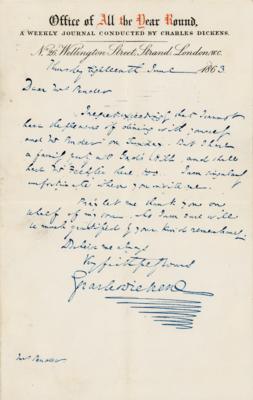 Office of All the Year Round,
A WEEKLY JOURNAL CONDUCTED BY CHARLES DICKENS.
No. 26, Wellington Street, Strand, London, W.C.
Thursday Eighteenth June 1863
Dear Mrs Pender
I regret exceedingly that I cannot
have the pleasure of dining with yourself
and Mr Pender on Sunday. But I have
a family party at Gad's Hill, and shall
have Mr Fechter here too. I am singularly
unfortunate when you invite me.
Pray let me thank you on
behalf of my son, who I am sure will
be much gratified by your kind remembrance.
Believe me always
Very faithfully Yours
Charles Dickens
Mrs Pender